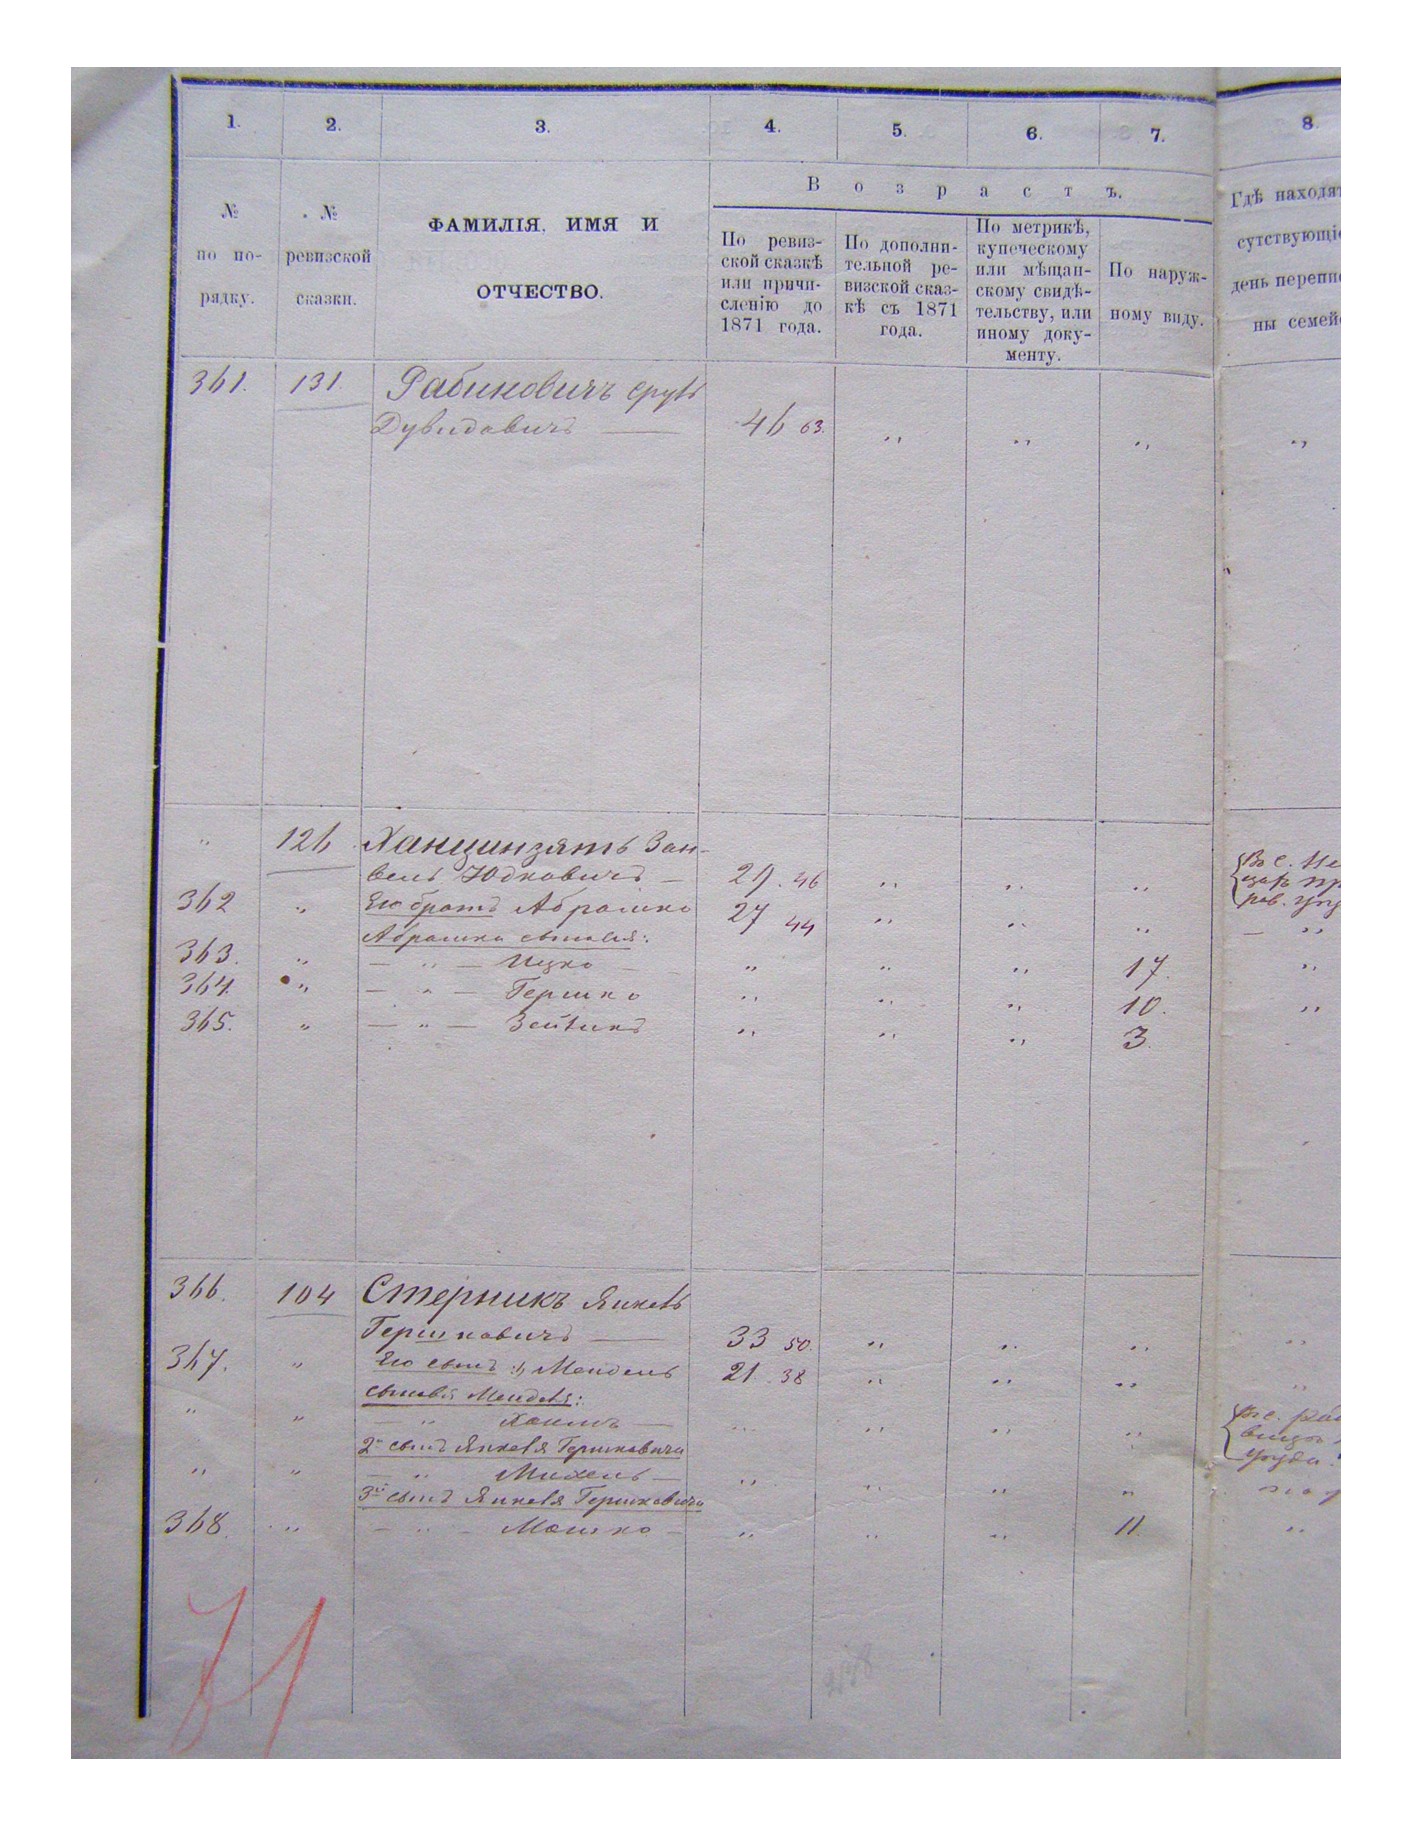 1. 2. 3. 4. 5. 6. 7. 8.
В о з р а с т ъ.
№
по по-
рядку.
№
ревизской
сказки.
ФАМИЛІЯ, ИМЯ И
ОТЧЕСТВО.
По ревиз-
ской сказкѣ
или причи-
сленію до
1871 года.
По дополни-
тельной ре-
визской сказ-
кѣ съ 1871
года.
По метрикѣ,
купеческому
или мѣщан-
скому свидѣ-
тельству, или
иному доку-
менту.
По наруж-
ному виду.
Гдѣ находят
сутствующіе
день перепи
ны семей
361. 131. Рабиновичъ Сруль
Дувидовичъ — 46 63. „ „ „ „
„ 126 Зан-
вель Юдковичъ — 29. 46 „ „ „
362 „ Его братъ Абрамко 27 44 „ „ „ — „
Абрамка сыновья:
363. „ — „ — Ицко „ „ „ 17. „
364. „ — „ — Гершко „ „ „ 10. „
365. „ — „ — Зейликъ „ „ „ 3.
366. 104 Стерникъ Янкель
Гершковичъ — 33 50. „ „ „ „
367. „ Его сынъ Мендель 21. 38 „ „ „ „
сыновья Менделя:
„ „ — „ Хаимъ — „ „ „ „
2й сынъ Янкеля Гершковича
„ „ — „ Михель — „ „ „ „
3й сынъ Янкеля Гершковича
368. „ — „ — Мошко — „ „ „ 11. „